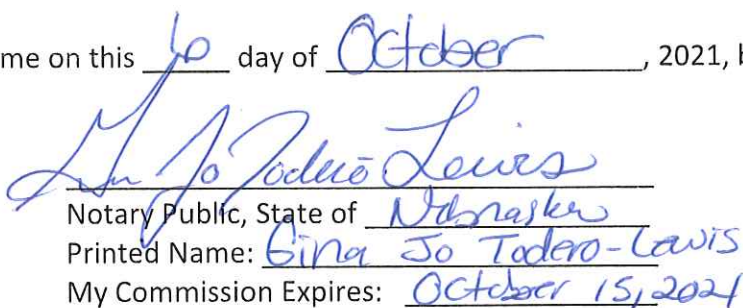 me on this 6 day of October, 2021, b
Gina Jo Todero Lewis
Notary Public, State of Nebraska
Printed Name: Gina Jo Todero-Lewis
My Commission Expires: October 15, 2021